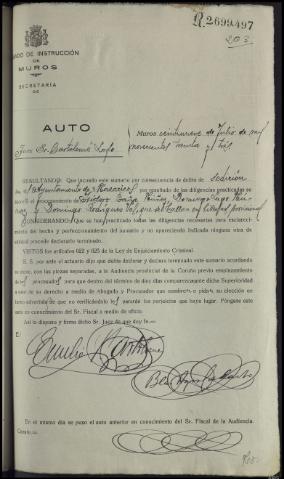 R.2699,497
203
JUZGADO DE INSTRUCCIÓN
DE
MUROS
SECRETARÍA
DE
AUTO
Juez Sr. Bartolomé
Muros veintinueve de Julio de mil
novecientos treinta y tres
RESULTANDO: Que incoado este sumario por consecuencia de delito de sedición
en el Ayuntamiento de Mazaricos, por resultado de las diligencias practicadas se
Domingo
y Domingo Rodríguez
CONSIDERANDO: Que se han practicado todas las diligencias necesarias para esclarecimiento
del hecho y perfeccionamiento del sumario y no apareciendo indicada ninguna otra de
oficial procede declararlo terminado.
VISTOS los artículos 622 y 623 de la Ley de Enjuiciamiento Criminal.
S. S. por ante el actuario dijo que debía declarar y declara terminado este sumario acordando
se eleve, con las piezas separadas, a la Audiencia provincial de la Coruña previo emplazamiento de
los procesados para que dentro del término de diez días comparezcan ante dicha Superioridad
a usar de su derecho a medio de Abogado y Procurador que nombren o pidan su elección en
turno advertidos de que no verificándolo les pararán los perjuicios que haya lugar. Póngase este
auto en conocimiento del Sr. Fiscal a medio de oficio.
Así lo dispuso y firma dicho Sr. Juez de que doy fe.
E/
Emilio
En el mismo día se puso el auto anterior en conocimiento del Sr. Fiscal de la Audiencia.